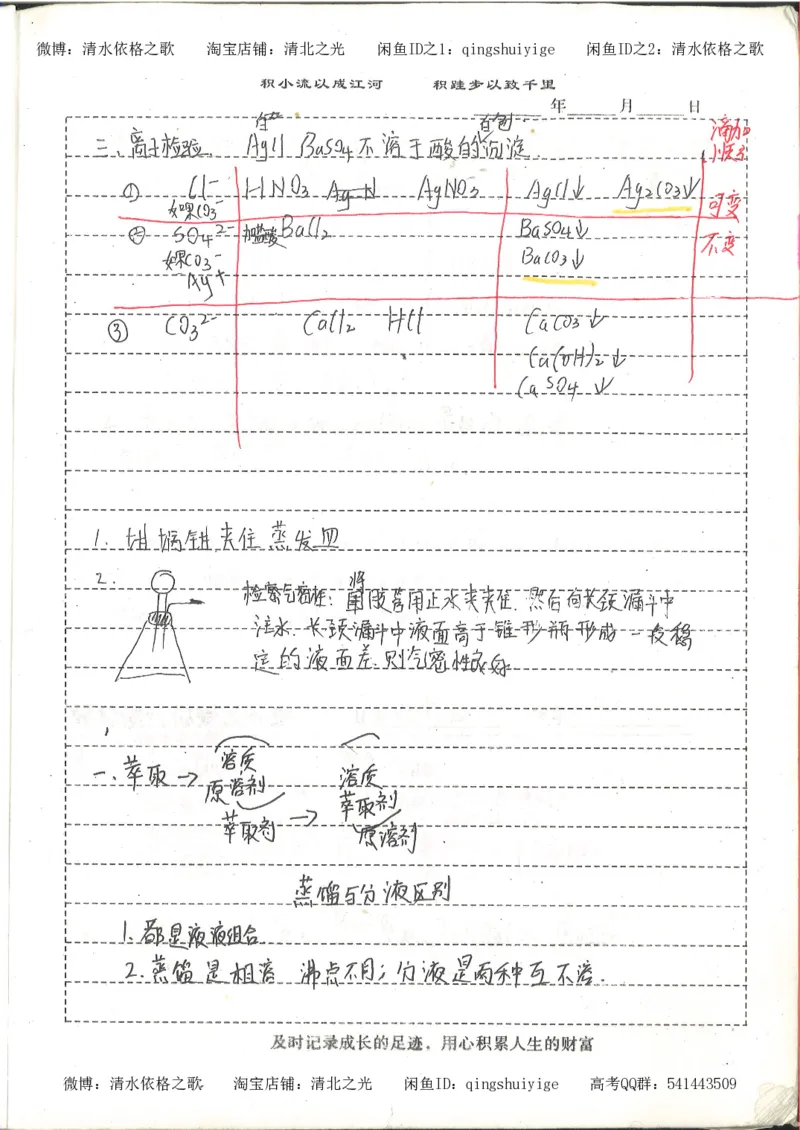 微博：清水依格之歌 淘宝店铺：清北之光 闲鱼ID之1：qingshuiyige 闲鱼ID之2：清水依格之歌
积小流以成江河 积跬步以致千里
年 月 日
白色 白色
三、离子检验 AgCl BaSO4 不溶于酸的沉淀
滴加
① Cl⁻ HNO3 AgNO3 AgCl↓ Ag2CO3↓
如果CO3⁻ 可变
② SO4²⁻ 加盐酸 BaCl2 BaSO4↓ 不变
如果CO3⁻ BaCO3↓
Ag+
③ CO3²⁻ CaCl2 HCl CaCO3↓
Ca(OH)2↓
CaSO4↓
1. 坩埚钳夹住蒸发皿
2.
检察气密性：将 用止水夹夹住.然后向长颈漏斗中
注水.长颈漏斗中液面高于锥形瓶形成一段稳
定的液面差.则气密性良好
一.萃取→ 溶质 溶质
原溶剂 萃取剂
萃取剂 → 原溶剂
蒸馏与分液区别
1.都是液液组合
2.蒸馏是相溶 沸点不同；分液是两种互不溶.
及时记录成长的足迹，用心积累人生的财富
微博：清水依格之歌 淘宝店铺：清北之光 闲鱼ID：qingshuiyige 高考QQ群：541443509